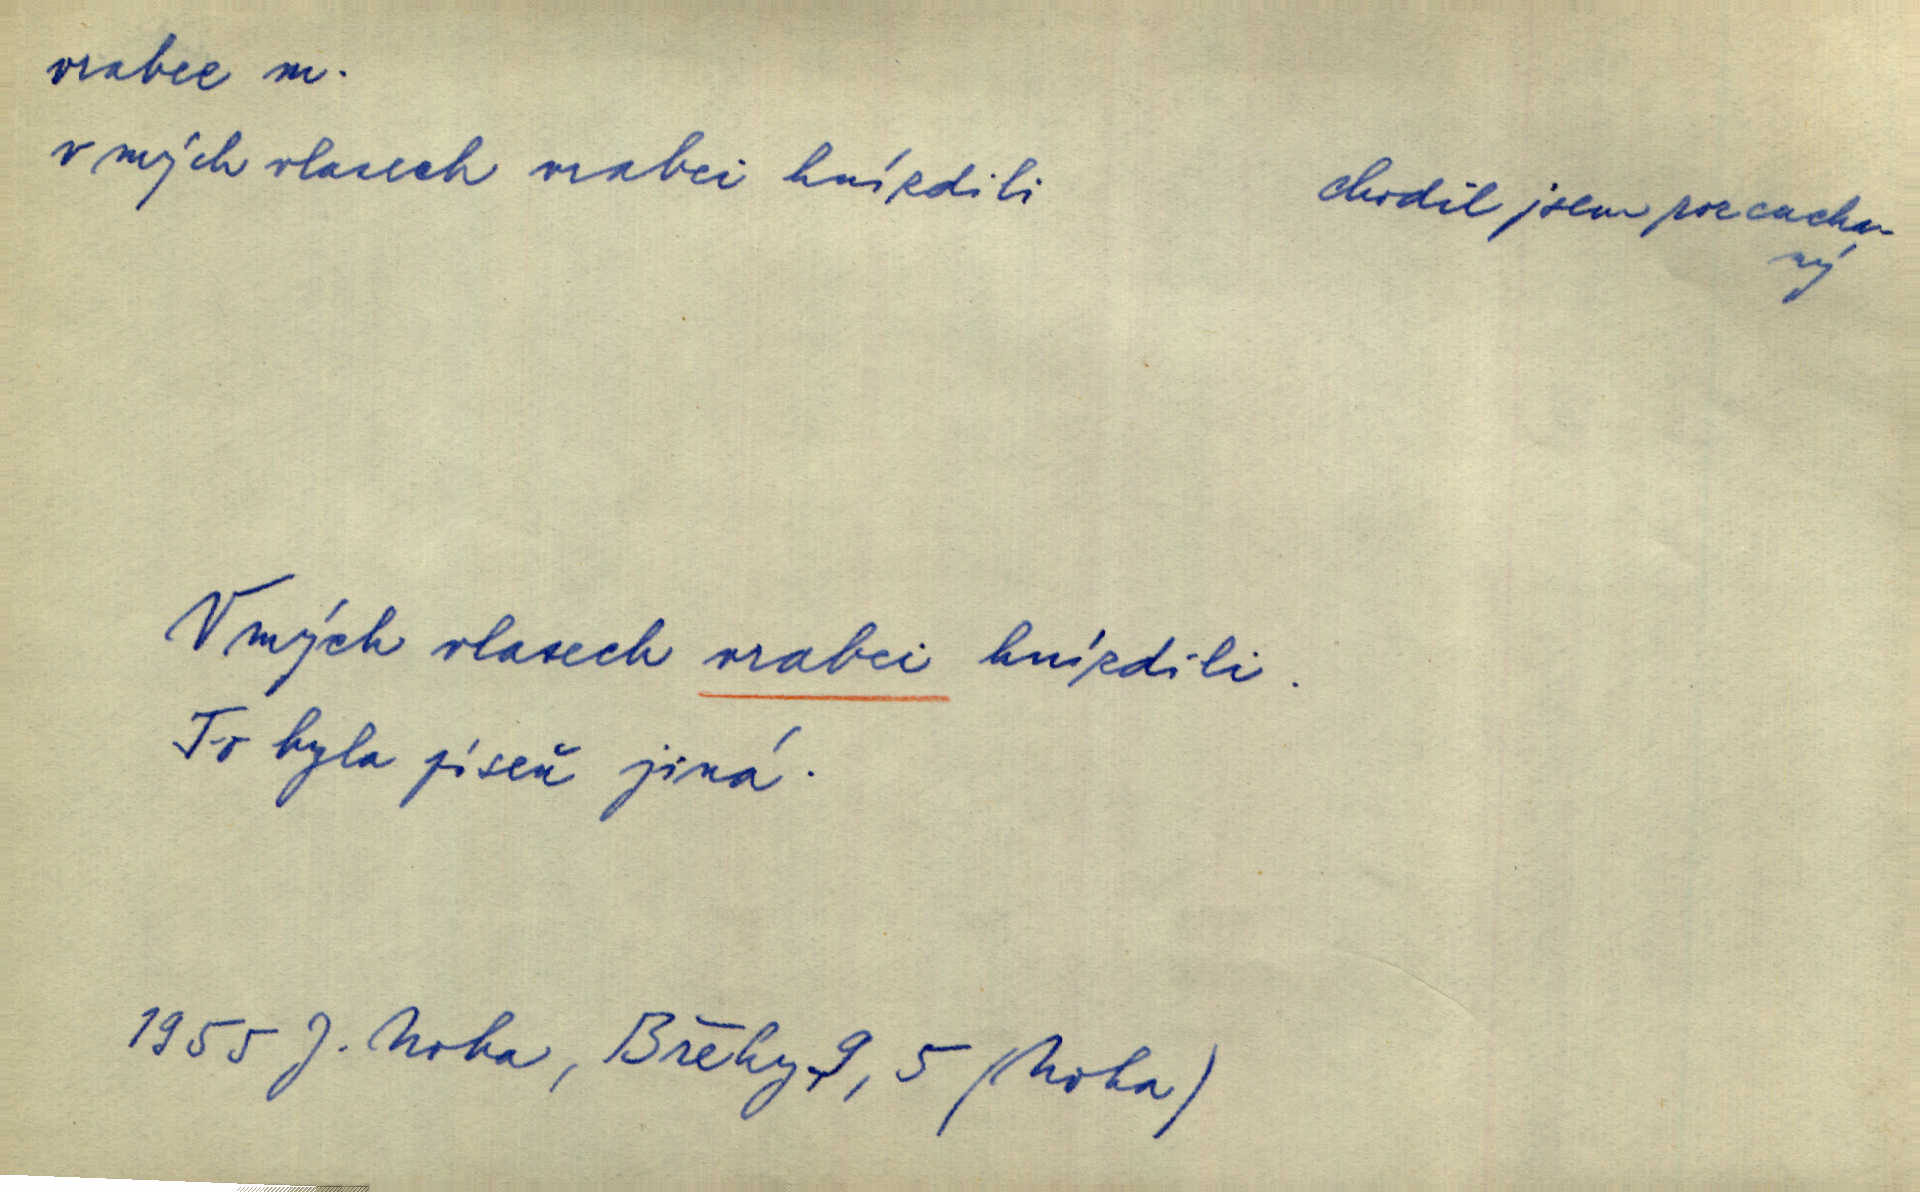 vrabec m.
v mých vlasech vrabci hnízdili
chodil jsem rozcucha-
ný
V mých vlasech vrabci hnízdili.
To byla píseň jiná.
1955 J. Noha, Břehy 9, 5 (Noha)